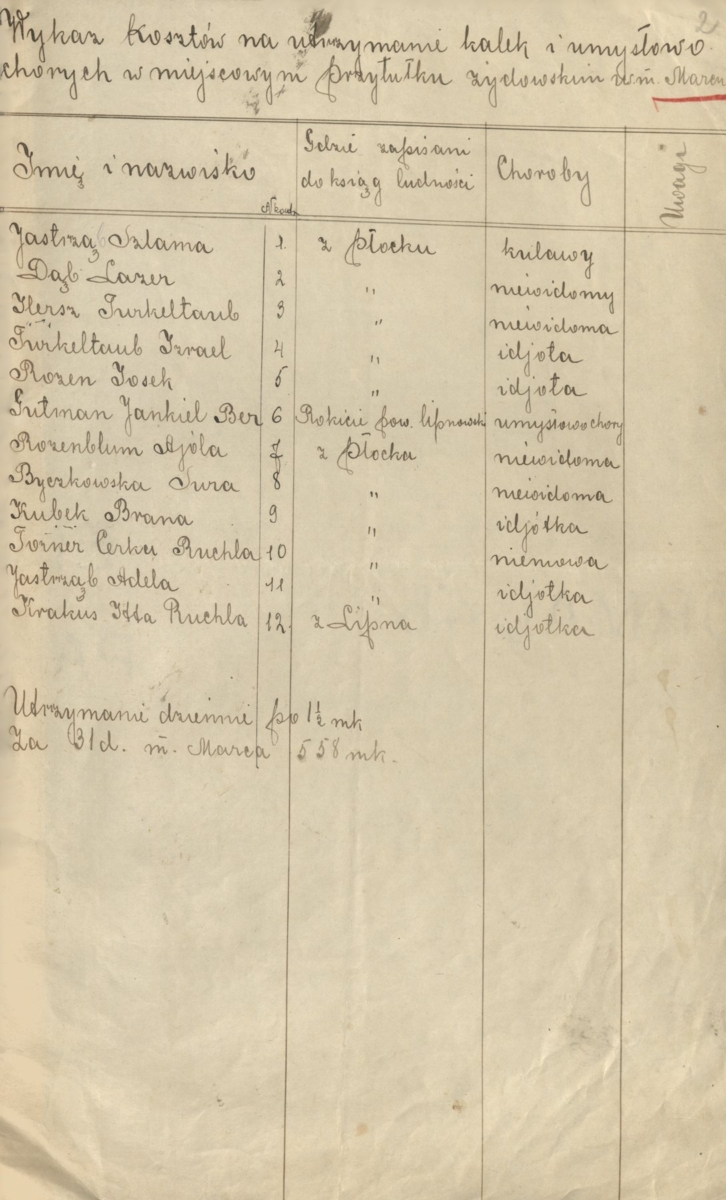 2
Wykaz kosztów na utrzymanie kalek i umysłowo
chorych w miejscowym przytułku żydowskim w m. Marcu
Imię i nazwisko
Gdzie zapisani
do ksiąg ludności
Choroby
Uwagi
Jastrząb Szlama 1. z Płocku kulawy
Dąb Lazer 2 " niewidomy
Hersz Turkeltaub 3 " niewidoma
Turkeltaub Izrael 4 " idjota
Rozen Josek 5 " idjota
Gutman Jankiel Ber 6 Rokicie pow. lipnowsk umysłowo chory
Rozenblum Ajola 7 z Płocka niewidoma
Byczkowska Sura 8 " niewidoma
Kubek Brana 9 " idjotka
Cerka Ruchla 10 " niemowa
Jastrząb Adela 11 " idjotka
Krakus Itta Ruchla 12. z Lipna idjotka
Utrzymanie dziennie po 1½ mk
Za 31 d. m. Marca 558 mk.